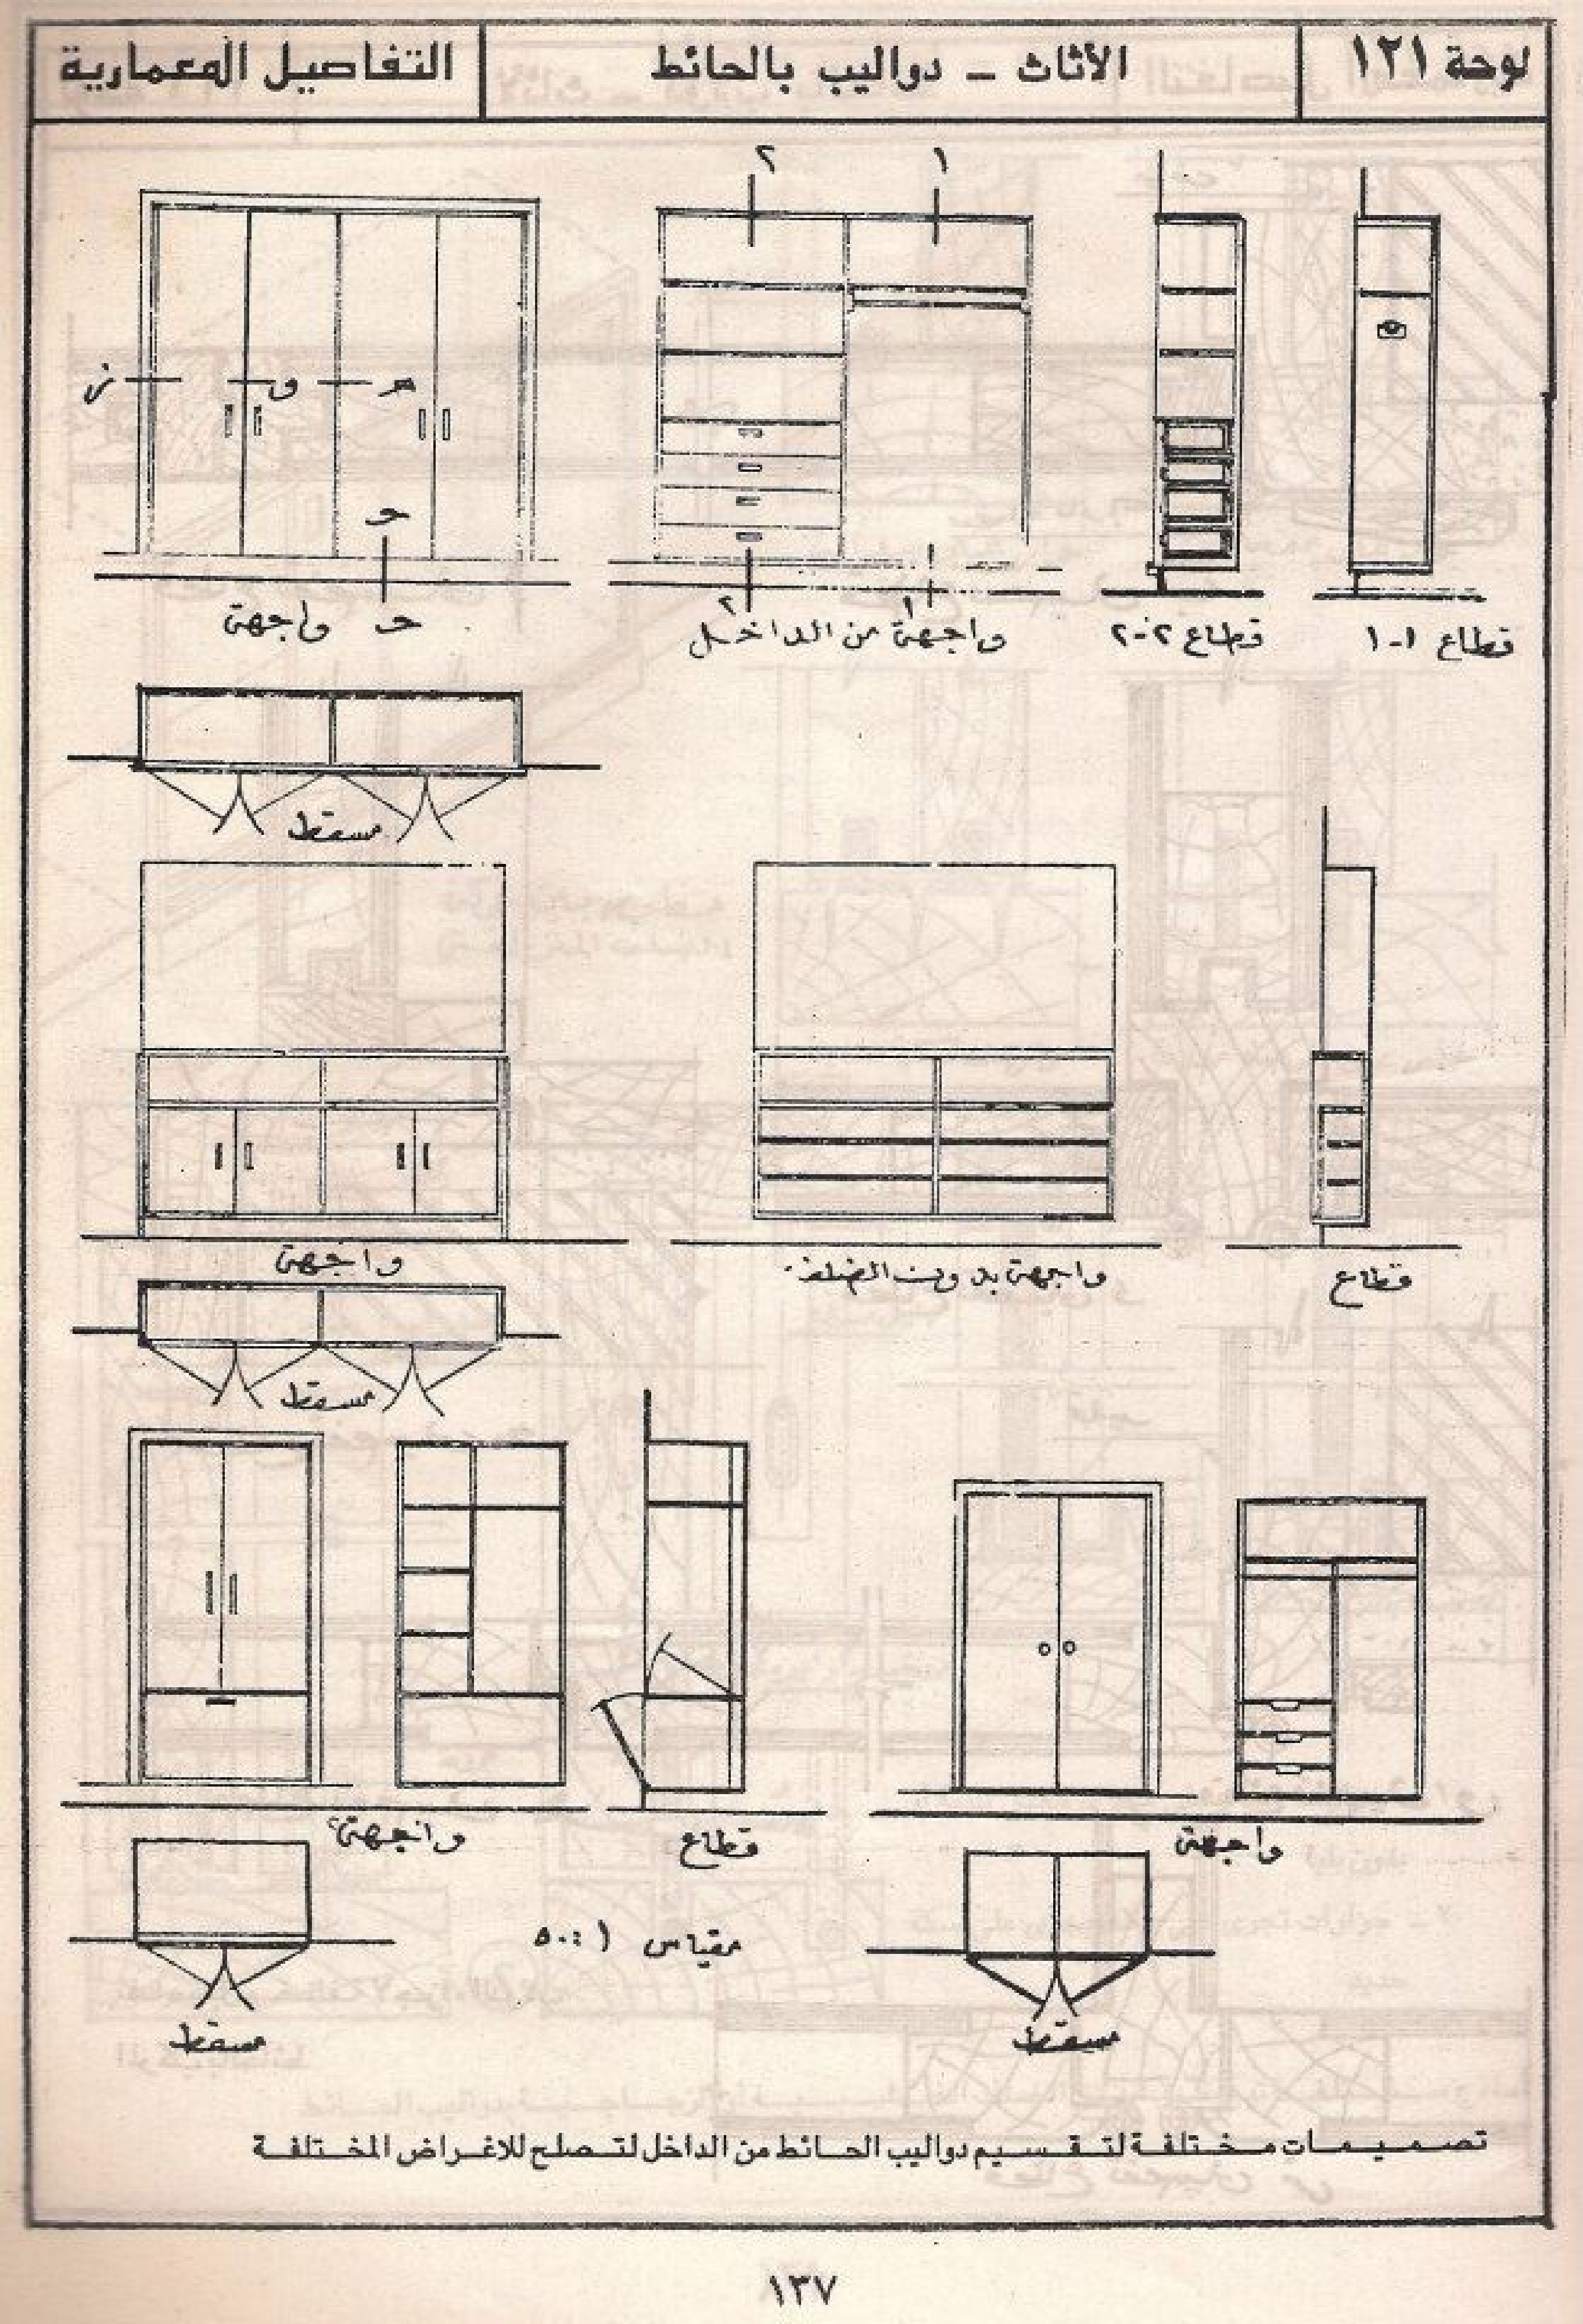 لوحة ١٢١
الأثاث - دواليب بالحائط
التفاصيل المعمارية
١
٢
ز
و
ه
ح
ح
١
٢
قطاع ١-١
قطاع ٢-٢
واجهة من الداخل
واجهة
مسقط
قطاع
واجهة بدون الضلف
واجهة
مسقط
واجهة
قطاع
واجهة
مقياس ١:٥٠
مسقط
مسقط
تصميمات مختلفة لتقسيم دواليب الحائط من الداخل لتصلح للاغراض المختلفة
١٣٧